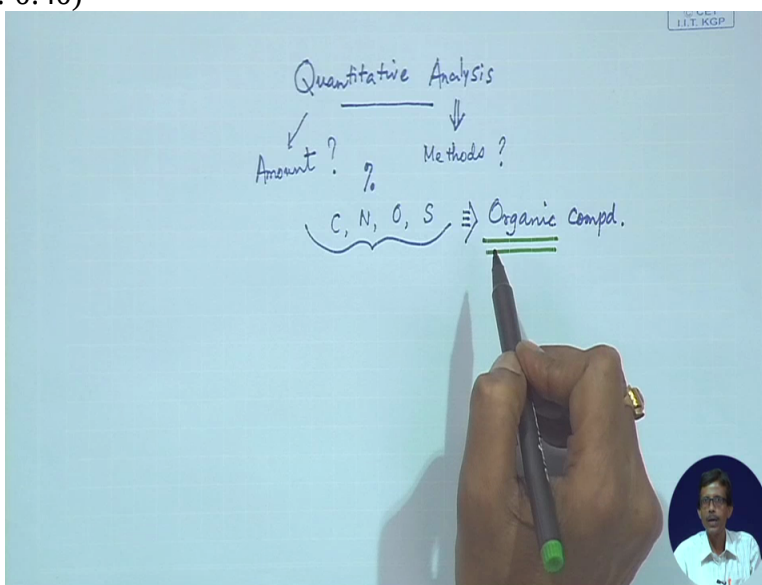 : 0:40)
© CET
I.I.T. KGP
Quantitative Analysis
Amount ? Methods ?
%
C, N, O, S ≡> Organic compd.